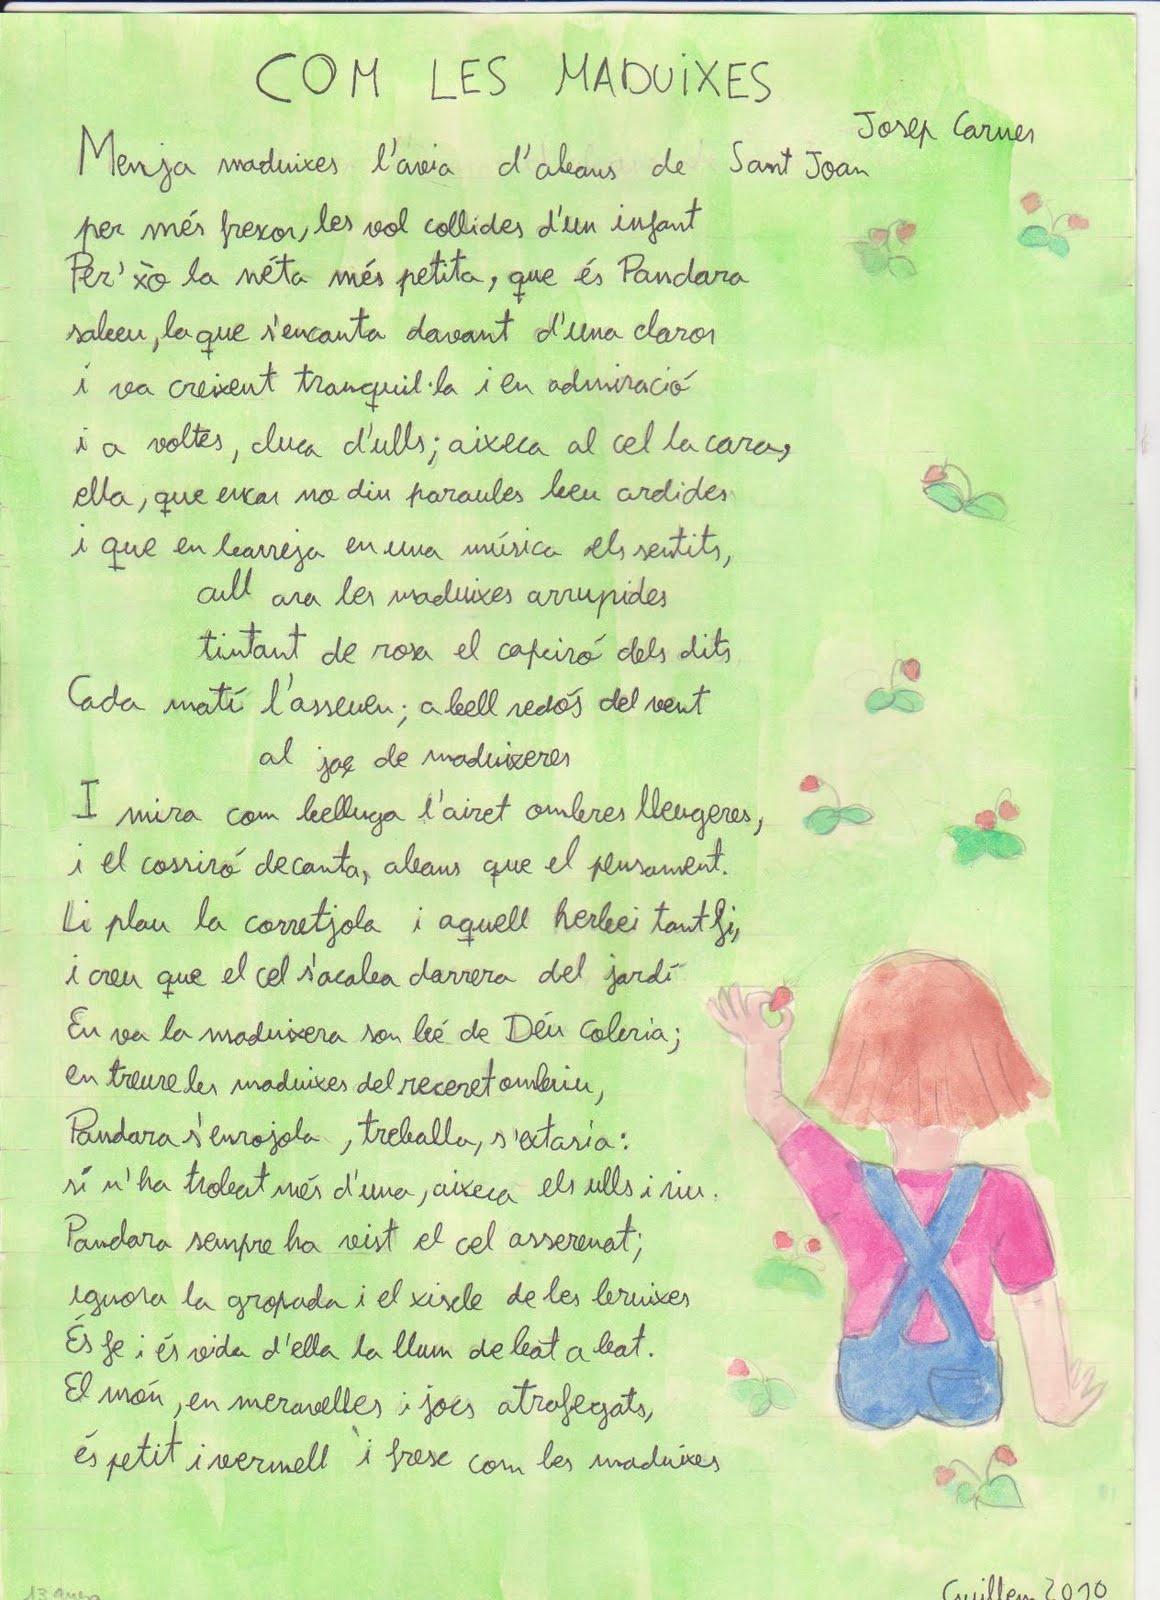 COM LES MADUiXES
Josep Carner
Menja maduixes l'àvia d'abans de Sant Joan
per més frescor, les vol collides d'un infant
Per'xò la néta més petita, que és Pandara
sabeu, la que s'encanta davant d'una claror
i va creixent tranquil·la i en admiració
i a voltes, cluca d'ulls; aixeca al cel la cara,
ella, que encar no diu paraules ben ardides
i que en barreja en una música els sentits,
cull ara les maduixes arrupides
tintant de rosa el capciró dels dits
Cada matí l'asseuen; a bell redós del vent
al jaç de maduixeres
I mira com belluga l'airet ombres lleugeres,
i el cossiró decanta, abans que el pensament.
Li plau la corretjola i aquell herbei tant fi,
i creu que el cel s'acaba darrera del jardí
En va la maduixera son bé de Déu cobria;
en treure les maduixes del receret ombriu,
Pandara s'enrojola, treballa, s'extasia:
si n'ha trobat més d'una, aixeca els ulls i riu.
Pandara sempre ha vist el cel asserenat;
ignora la gropada i el xiscle de les bruixes
És fe i és vida d'ella la llum de bat a bat.
El món, en meravelles i jocs atrafegats,
és petit i vermell i fresc com les maduixes
Guillem 2010